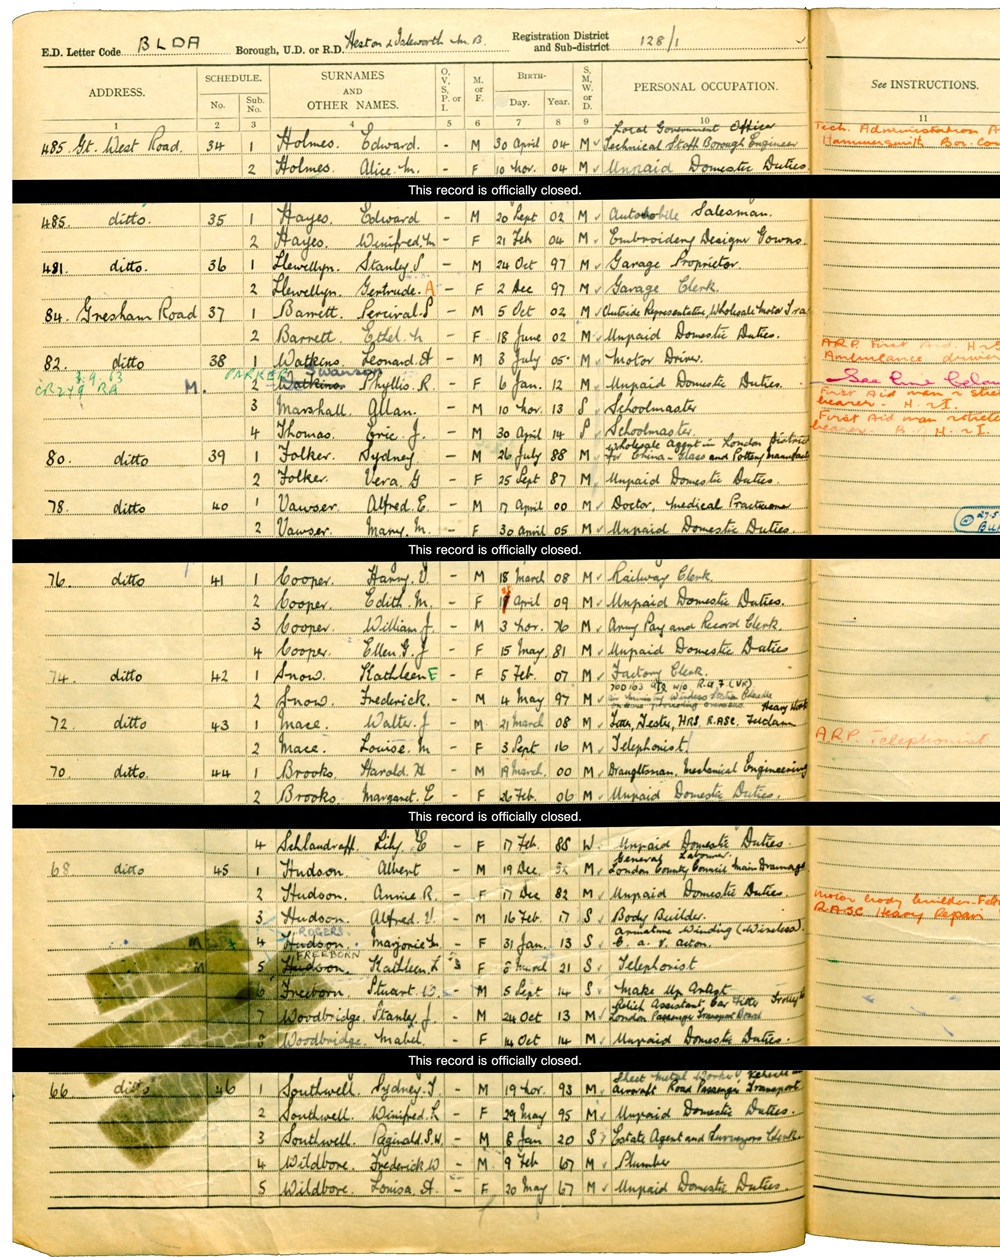 E.D. Letter Code BLDA Borough, U.D. or R.D. Heston & Isleworth M.B. Registration District and Sub-district 128/1
ADDRESS. SCHEDULE. SURNAMES AND OTHER NAMES. O, V, S, P. or I. M. or F. BIRTH- S, M, W, or D. PERSONAL OCCUPATION. See INSTRUCTIONS.
No. Sub. No. Day. Year.
1 2 3 4 5 6 7 8 9 10 11
Local Government Officer Tech. Administration
485 Gt. West Road. 34 1 Holmes. Edward. - M 30 April 04 M Technical Staff Borough Engineer Hammersmith Bor.
2 Holmes. Alice. M. - F 10 Nov. 04 M Unpaid Domestic Duties
This record is officially closed.
485. ditto. 35 1 Hayes. Edward - M 20 Sept 02 M Automobile Salesman.
2 Hayes. Winifred. M - F 21 Feb 04 M Embroidery Designer Gowns.
481. ditto. 36 1 Llewellyn. Stanley S - M 24 Oct 97 M Garage Proprietor.
2 Llewellyn. Gertrude. A - F 2 Dec 97 M Garage Clerk.
84. Gresham Road 37 1 Barrett. Percival. S - M 5 Oct 02 M Outside Representative, Wholesale Motor Tra
2 Barrett. Ethel. M - F 18 June 02 M Unpaid Domestic Duties. A.R.P. First Aid.
82. ditto 38 1 Watkins. Leonard. A - M 3 July 05 M Motor Driver. Ambulance driver
PARKER Swanson
3.9.63 CR249 RA M. 2 Watkins Phyllis. R. - F 6 Jan. 12 M Unpaid Domestic Duties. See line below
3 Marshall. Allan. - M 10 Nov. 13 S Schoolmaster First Aid man
bearer.
4 Thomas. Eric. J. - M 30 April 14 S Schoolmaster. First Aid man
Wholesale agent in London District
80. ditto 39 1 Folker. Sydney - M 26 July 88 M for China - Glass and Pottery
2 Folker. Vera. G - F 25 Sept 87 M Unpaid Domestic Duties.
78. ditto 40 1 Vawser. Alfred. E. - M 17 April 00 M Doctor, Medical Practitioner
2 Vawser. Mary. M. - F 30 April 05 M Unpaid Domestic Duties.
This record is officially closed.
76. ditto 41 1 Cooper. Harry. V - M 18 March 08 M Railway Clerk.
2 Cooper. Edith. M. - F April 09 M Unpaid Domestic Duties.
3 Cooper. William. J. - M 3 Nov. 76 M Army Pay and Record Clerk.
4 Cooper. Ellen. G. J - F 15 May. 81 M Unpaid Domestic Duties
74. ditto 42 1 Snow. Kathleen E - F 5 Feb. 07 M Factory Clerk.
2 Snow. Frederick. - M 4 May 97 M Heavy Work
72. ditto 43 1 Mace. Walter. J - M 21 March 08 M Tester, HRS. R.A.S.C. Feltham
2 Mace. Louise. M - F 3 Sept 16 M Telephonist. A.R.P. Telephonist
70. ditto. 44 1 Brooks. Harold. H - M 19 March. 00 M Draughtsman. Mechanical Engineering
2 Brooks. Margaret. E - F 26 Feb. 06 M Unpaid Domestic Duties.
This record is officially closed.
4 Schlandraff. Lily. E - F 17 Feb. 88 W. Unpaid Domestic Duties.
General Labourer.
68 ditto 45 1 Hudson. Albert - M 19 Dec. M London County Council Main Drainage
2 Hudson. Annie R. - F 17 Dec 82 M Unpaid Domestic Duties.
3 Hudson. Alfred. V. - M 16 Feb. 17 S Body Builder. Motor body builder
R.A.S.C. Heavy Repair
ROGERS Armature Winding (Wireless).
M 4 Hudson. Marjorie M. - F 31 Jan. 13 S C. A. V. Acton.
FREEBORN
M 5 Hudson. Kathleen. L F 8 March 21 S Telephonist
6 Freeborn. Stuart W. - M 5 Sept 14 S Make Up Artist
7 Woodbridge. Stanley. J. - M 24 Oct 13 M London Passenger Transport Board
8 Woodbridge. Mabel. - F 14 Oct 14 M Unpaid Domestic Duties.
This record is officially closed.
Sheet Metal Worker
66 ditto 46 1 Southwell. Sydney. T - M 19 Nov. 93 M Aircraft Road Passenger Transport
2 Southwell. Winifred. L - F 29 May 95 M Unpaid Domestic Duties.
3 Southwell. Reginald. S. W. - M 8 Jan 20 S Estate Agent and Surveyors Clerk
4 Wildbore. Frederick W - M. 9 Feb 67 M Plumber
5 Wildbore. Louisa. A. - F 20 May 67 M Unpaid Domestic Duties.